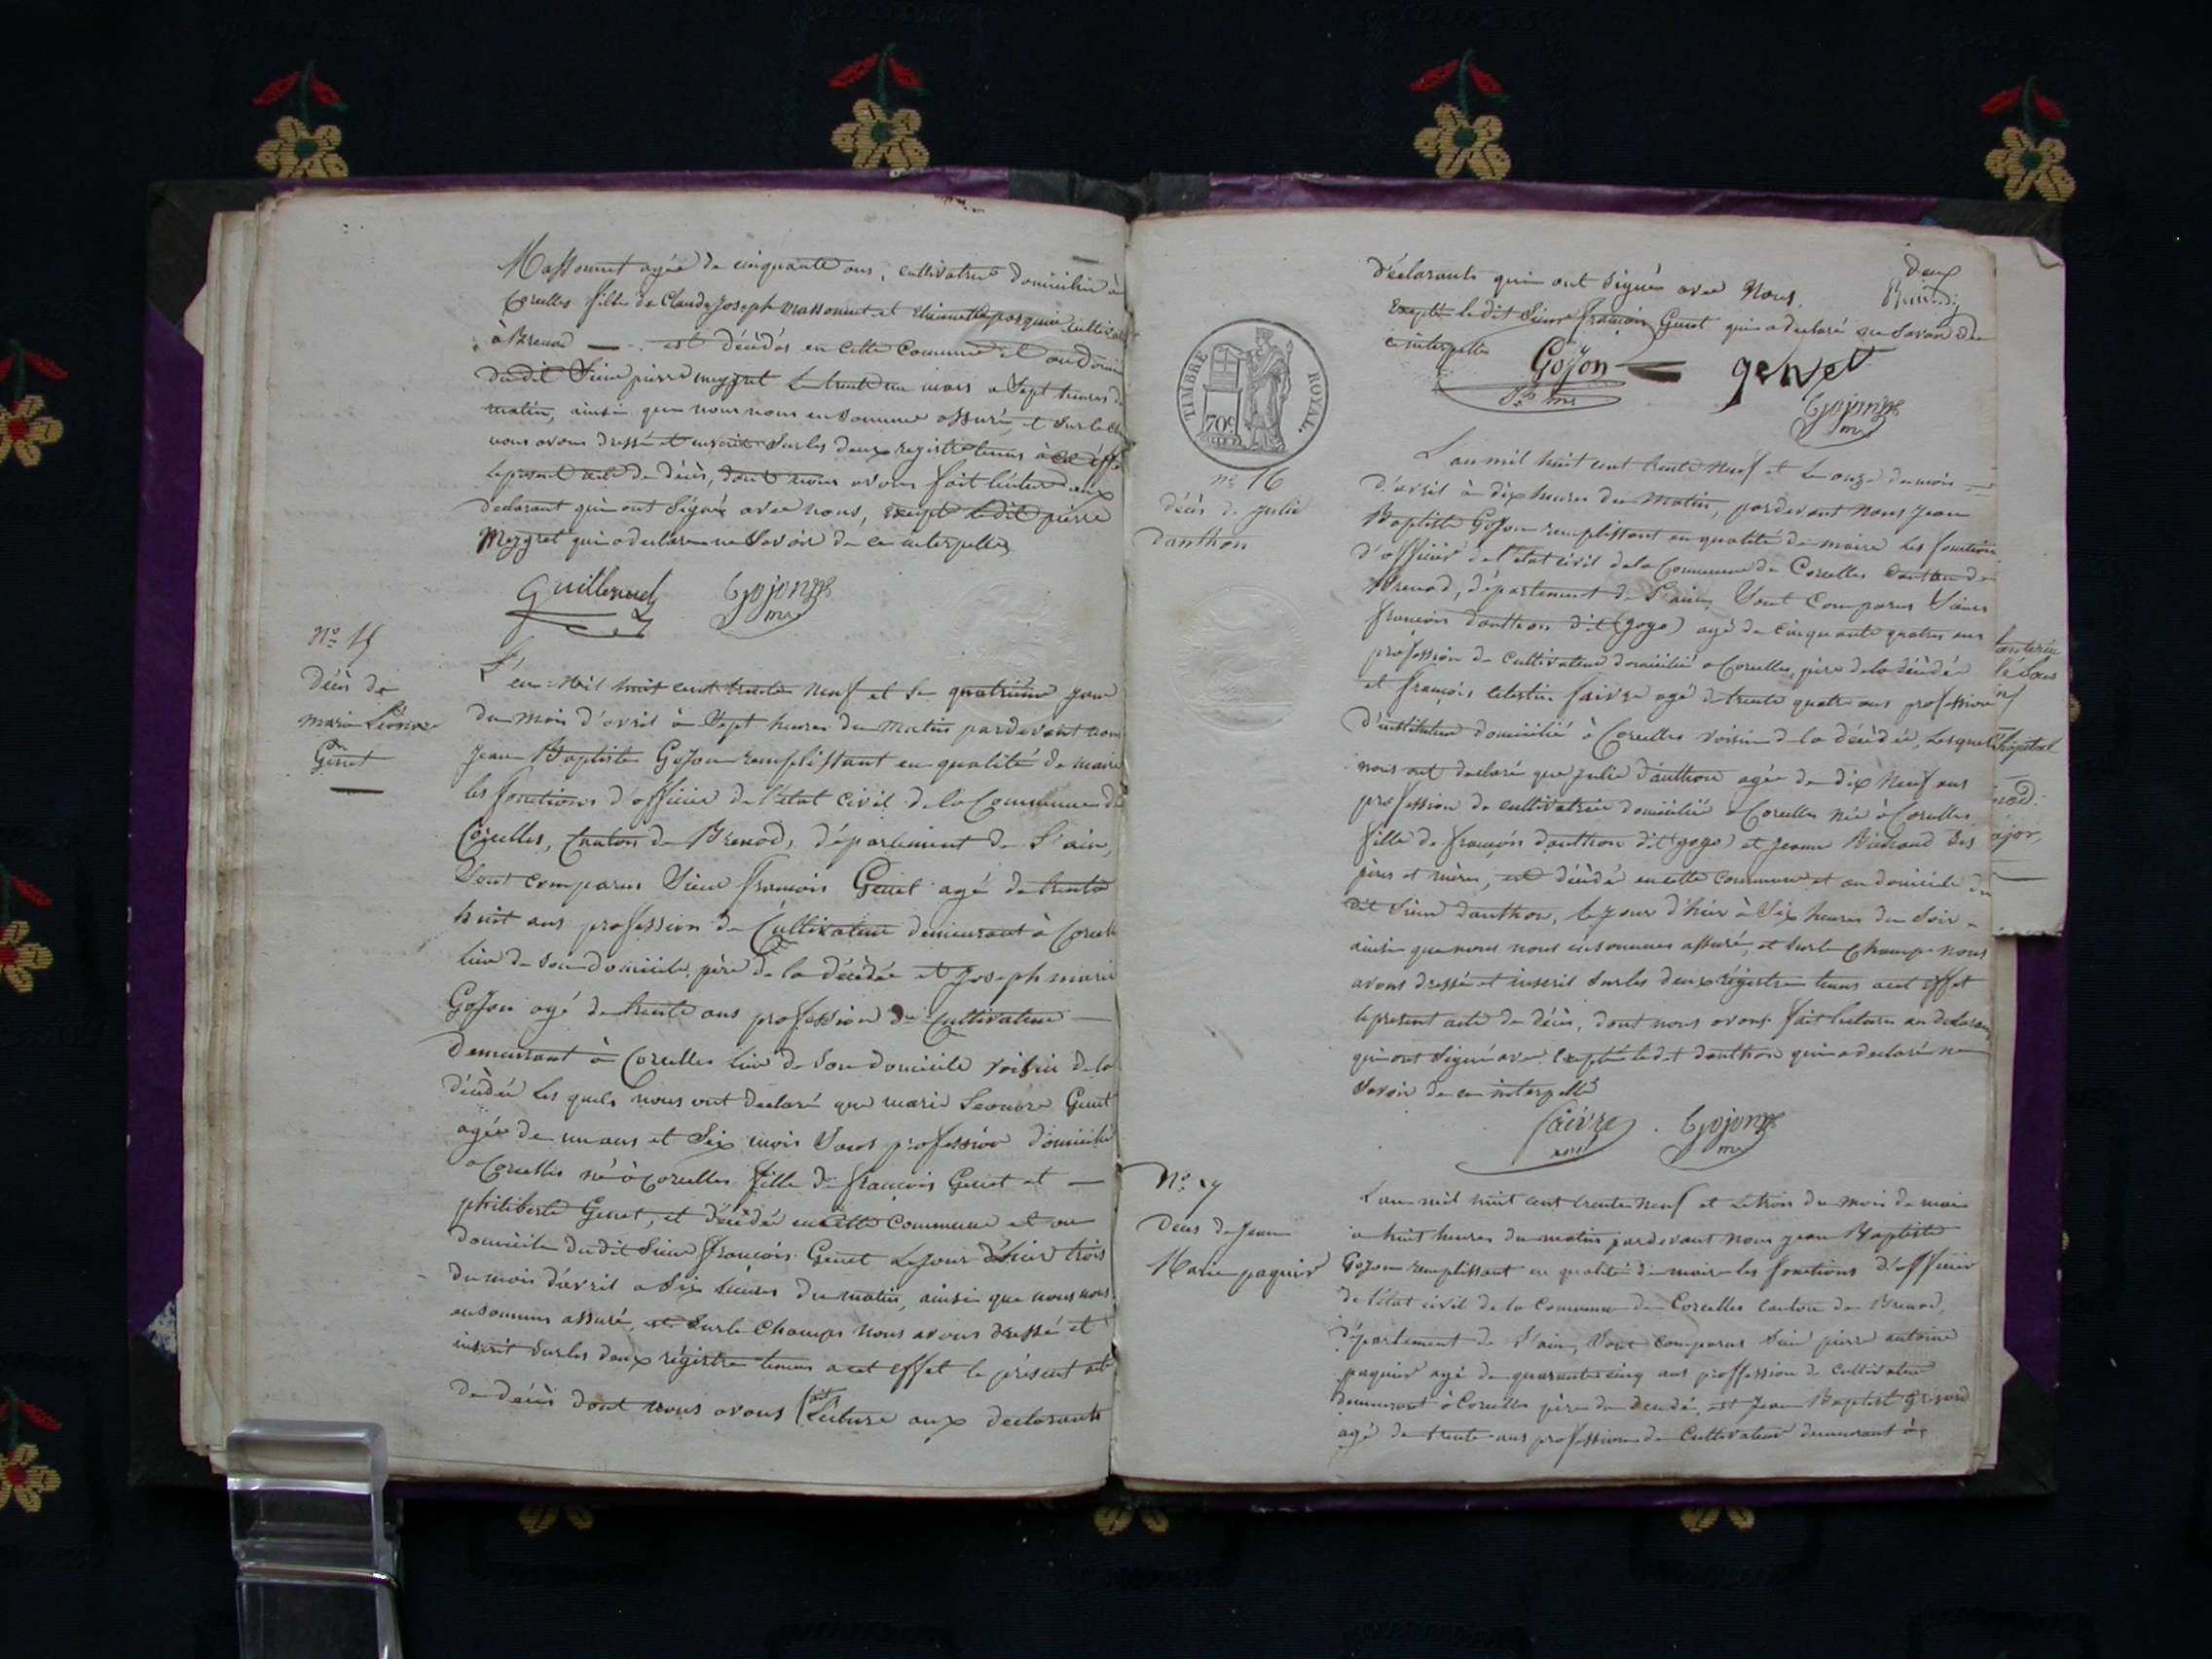 Massonnet agée de cinquante ans, cultivatrice domiciliée à
Corcelles fille de Claude Joseph Massonnet et cultivateur
à Brenod — est décédée en cette Commune et au domicile
dudit Sieur pierre meygret le trente un mars a Sept heures du
matin, ainsi que nous nous en sommes assuré, et sur le champ
nous avons dressé et inscrit sur les deux registre tenus à cet effet
le présent acte de décès, dont nous avons fait lecture aux
declarant qui ont Signé avec nous, excepté le dit pierre
Meygret qui a declaré ne Savoir de ce interpellé
Guillermet Gojon
mre
No 15
Décès de
marie Léonore
Genet
L'an mil huit cent trente neuf et le quatrième jour
du mois d'avril à Sept heures du matin pardevant nous
Jean Baptiste Gojon remplissant en qualité de maire
les fonctions d'officier de l'état civil de la Commune de
Corcelles, Canton de Brenod, département de l'ain,
Sont comparus Sieur françois Genet agé de trente
huit ans profession de Cultivateur demeurant à Corcelles
lieu de son domicile, père de la décédée et Joseph marie
Gojon agé de trente ans profession de Cultivateur —
demeurant à Corcelles lieu de Son domicile voisin de la
décédée Les quels nous ont declaré que marie Leonore Genet
agée de un ans et Six mois Sans profession domicilié
a Corcelles né à Corcelles fille de françois Genet et —
philiberte Genet, et décédée en cette Commune et au
domicile dudit Sieur françois Genet le jour d'hier trois
du mois d'avril a Six heures du matin, ainsi que nous nous
en sommes assuré, et Sur le Champs nous avons dressé et
inscrit Sur les deux régistre tenus a cet effet le présent acte
de décès dont nous avons fait Lecture aux declarants
deux
déclarants qui ont Signé avec Nous.
Excepté le dit Sieur françois Genet qui a declaré ne Savoir de
ce interpellé Gojon — genet
Jh me
Gojon
mre
TIMBRE ROYAL.
70c
no 16
décès de julie
danthon
L'an mil huit cent trente neuf et le onze du mois —
d'avril à dix heures du Matin, pardevant Nous Jean
Baptiste Gojon remplissant en qualité de maire les fonctions
d'officier de l'état civil de la Commune de Corcelles Canton de
Brenod, département de l'ain, Sont Comparus Sieur
françois danthon dit (gogo) agé de cinquante quatre ans
profession de Cultivateur domicilié a Corcelles, père de la décédée
et françois celestin faivre agé de trente quatre ans profession
d'instituteur domicilié à Corcelles voisin de la décédée, Lesquels
nous ont declaré que julie danthon agée de dix Neuf ans
profession de cultivatrice domiciliée a Corcelles née à Corcelles
fille de françois danthon dit (gogo) et jeanne Ses
pères et mères, est décédé en cette commune et au domicile du
dit Sieur danthon, le jour d'hier à Six heures du Soir —
ainsi que nous nous en sommes assuré, et Sur le Champ nous
avons dressé et inscrit Sur les deux régistre tenus a cet effet
le present acte de décès, dont nous avons fait lecture au declarant
qui ont Signé avec Excepté ledit danthon qui a declaré ne
Savoir de ce interpellé
faivre Gojon
mre
No 17
Deces de Jean
Marie paquier
L'an mil huit cent trente neuf et le trois du mois de mai
a huit heures du matin pardevant nous Jean Baptiste
Gojon remplissant en qualité de maire les fonctions d'officier
de l'état civil de la Commune de Corcelles canton de Brenod,
département de l'ain, Sont comparus Sieur pierre antoine
paquier agé de quarante cinq ans proffession de cultivateur
demeurant à Corcelles père de Décédé, et Jean Baptist
agé de trente ans profession de Cultivateur demeurant à
hopital